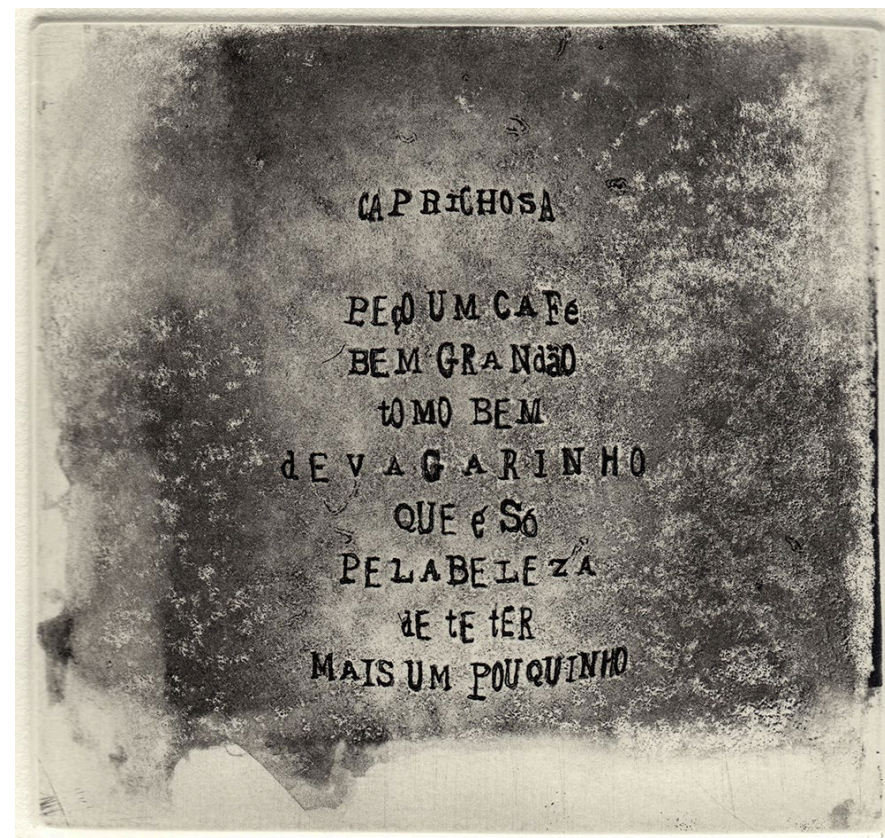 CAPRICHOSA
PEçO UM CAFé
BEM GRANdãO
tOMO BEM
dEVAGARINHO
QUE é Só
PELA BELEZA
dE tE tER
MAIS UM POUQUINHO